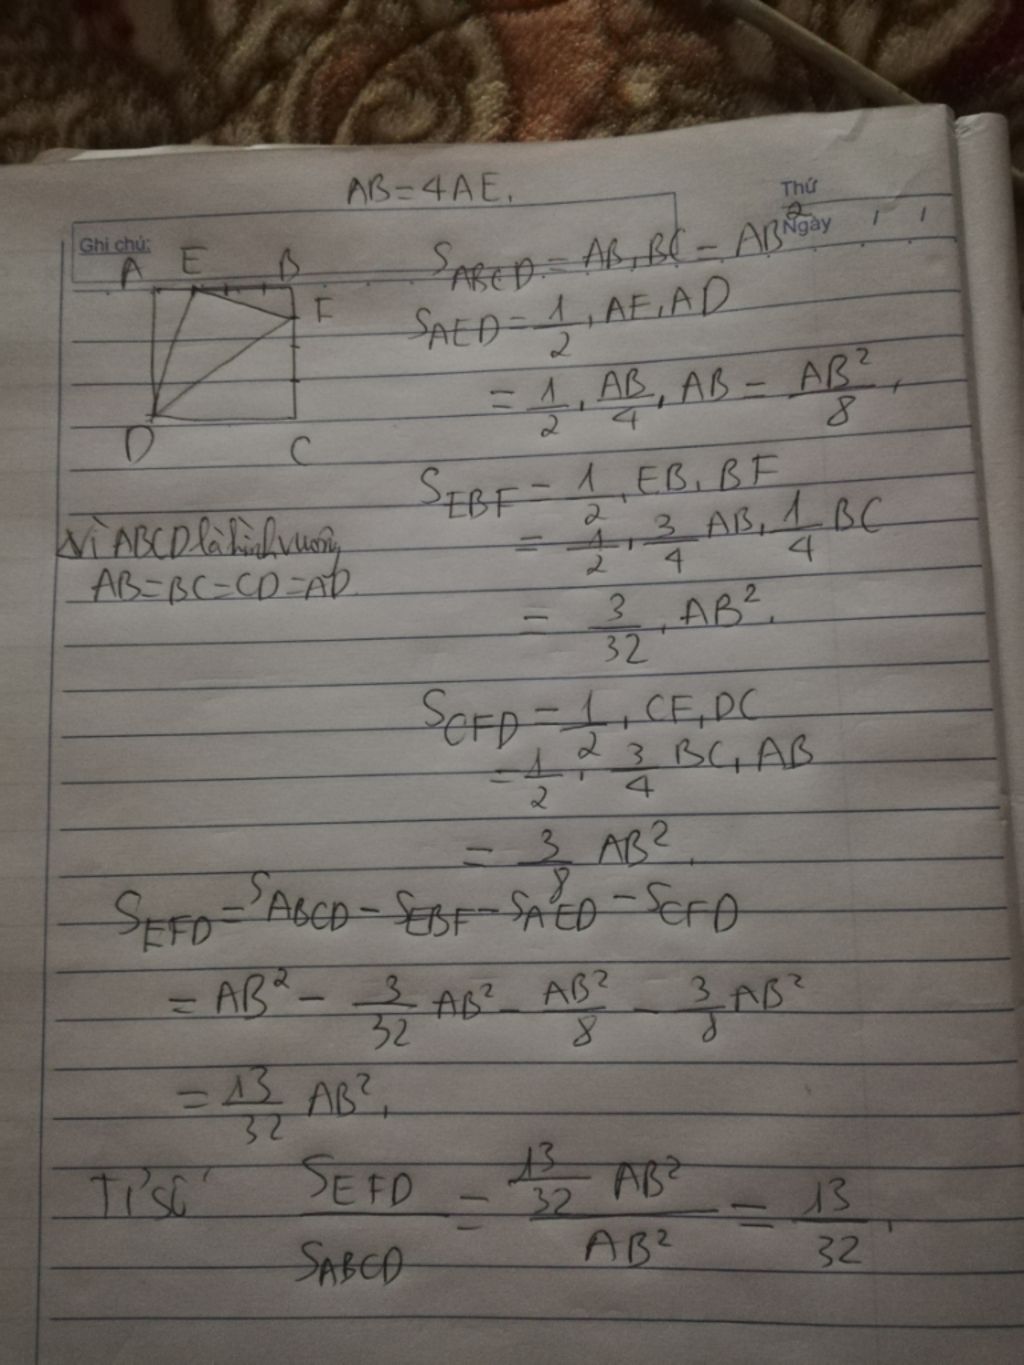 AB = 4AE.
Thứ
Ngày
Ghi chú:
A E B
F
D C
S_ABCD = AB.BC = AB²
S_AED = 1/2 . AE.AD
= 1/2 . AB/4 . AB = AB²/8 .
S_EBF = 1/2 . EB. BF
= 1/2 . 3/4 AB. 1/4 BC
= 3/32 . AB².
Vì ABCD là hình vuông
AB=BC=CD=AD
S_CFD = 1/2 . CF.DC
= 1/2 . 3/4 BC. AB
= 3/8 AB².
S_EFD = S_ABCD - S_EBF - S_AED - S_CFD
= AB² - 3/32 AB² - AB²/8 - 3/8 AB²
= 13/32 AB².
Tỉ số S_EFD/S_ABCD = 13/32 AB²/AB² = 13/32 .